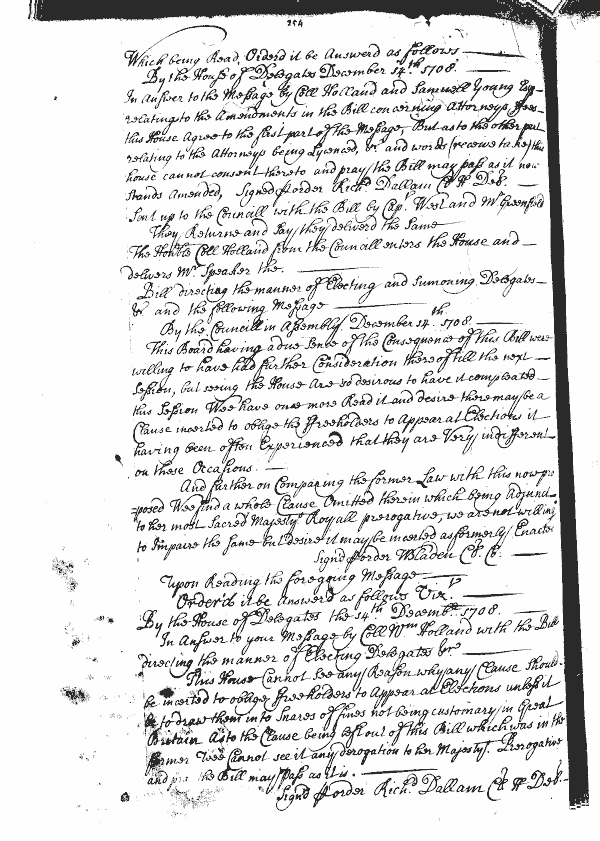 254
Which being Read, Orderd it be Answerd as follows
By the House of Delegates December 14th. 1708.
In Answer to the Message by Coll Holland and Samuell Young Esqr
relating to the Amendments in the Bill concerning Attorneys ffees
this House Agree to the first part of the Message, But as to the other part
relating to the Attorneys being Lycenced, &c. and words
house cannot consent thereto and pray the Bill may pass as it now
stands Amended, Signd p order Richd. Dallam Cl. H. Del.
Sent up to the Councill with the Bill by Capt. West and Mr Greenfield
They Returne and say they deliverd the Same
The Honble Coll Holland from the Councill enters the House and
delivers Mr. Speaker the.
Bill directing the manner of Electing and sumoning Delegates
&c. and the following Message
By the Councill in Assembly. December 14th. 1708.
This Board having a due Sence of the Consequence of this Bill were
willing to have had further Consideration thereof till the next
Session, but seeing the House Are so desirous to have it compleated
this Session Wee have once more Read it and desire there may be a
Clause inserted to oblige the ffreeholders to Appear at Elections it
having been often Experienced that they are Very indifferent
on these Occasions.
And further on Comparing the former Law with this now pro
=posed Wee find a whole Clause Omitted therein which being
to her most Sacred Majestys Royall prerogative, we are not willing
to Impaire the same but desire it may be inserted as formerly Enacted
Signd p order WBladen Cl. C.
Upon Reading the foregoing Message
Orderd it be Answerd as follows Vizt.
By the House of Delegates the 14th Decembr. 1708.
In Answer to your Message by Coll Wm Holland with the Bill
directing the manner of Electing Delegates &c
This House Cannot see any Reason why any Clause should
be inserted to oblige ffreeholders to Appear at Elections unless it
be to draw them into Snares of fines not being customary in Great
Britain As to the Clause being left out of this Bill which was in the
former Wee Cannot see it any derogation to her Majestys. Prerogative
and the Bill may pass as it is.
Signd p order Richd. Dallam Cl. H. Del.